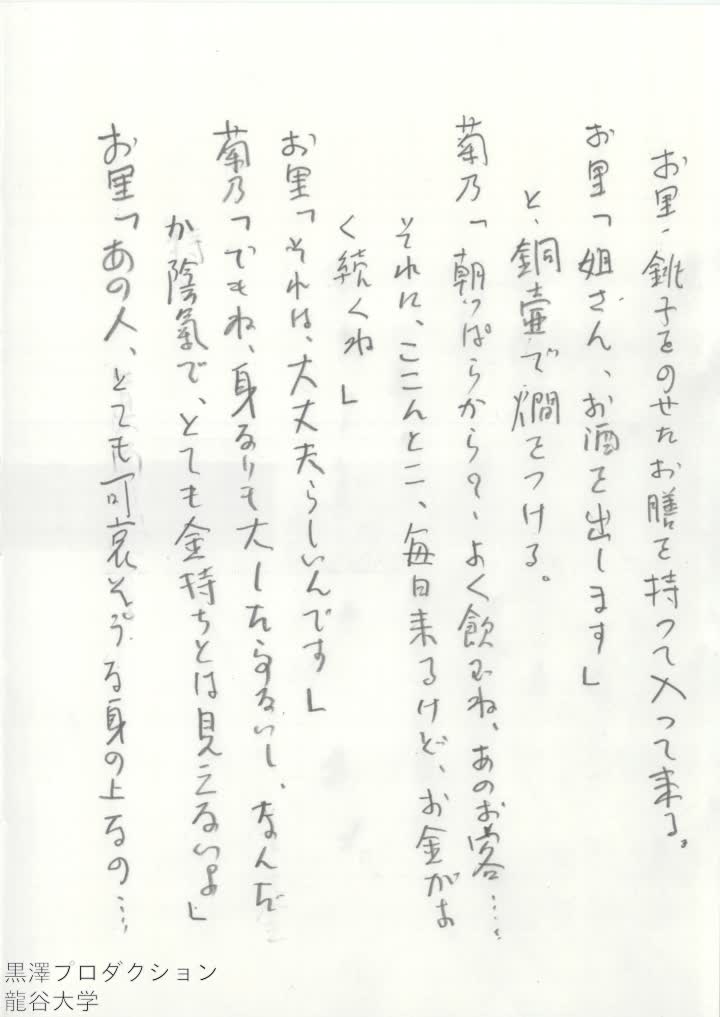 お里、銚子をのせたお膳を持つて入つて来る。
お里「姐さん、お酒を出します」
と、銅壷で燗をつける。
菊乃「朝つぱらから？、よく飲むね、あのお客……
それに、ここんとこ、毎日来るけど、お金がよ
く続くね」
お里「それは、大丈夫らしいんです」
菊乃「でもね、身なりも大したもんぢやないし、なんだ
か陰氣で、とても金持ちとは見えないよ」
お里「あの人、とても可哀そうな身の上なの…
黒澤プロダクション
龍谷大学